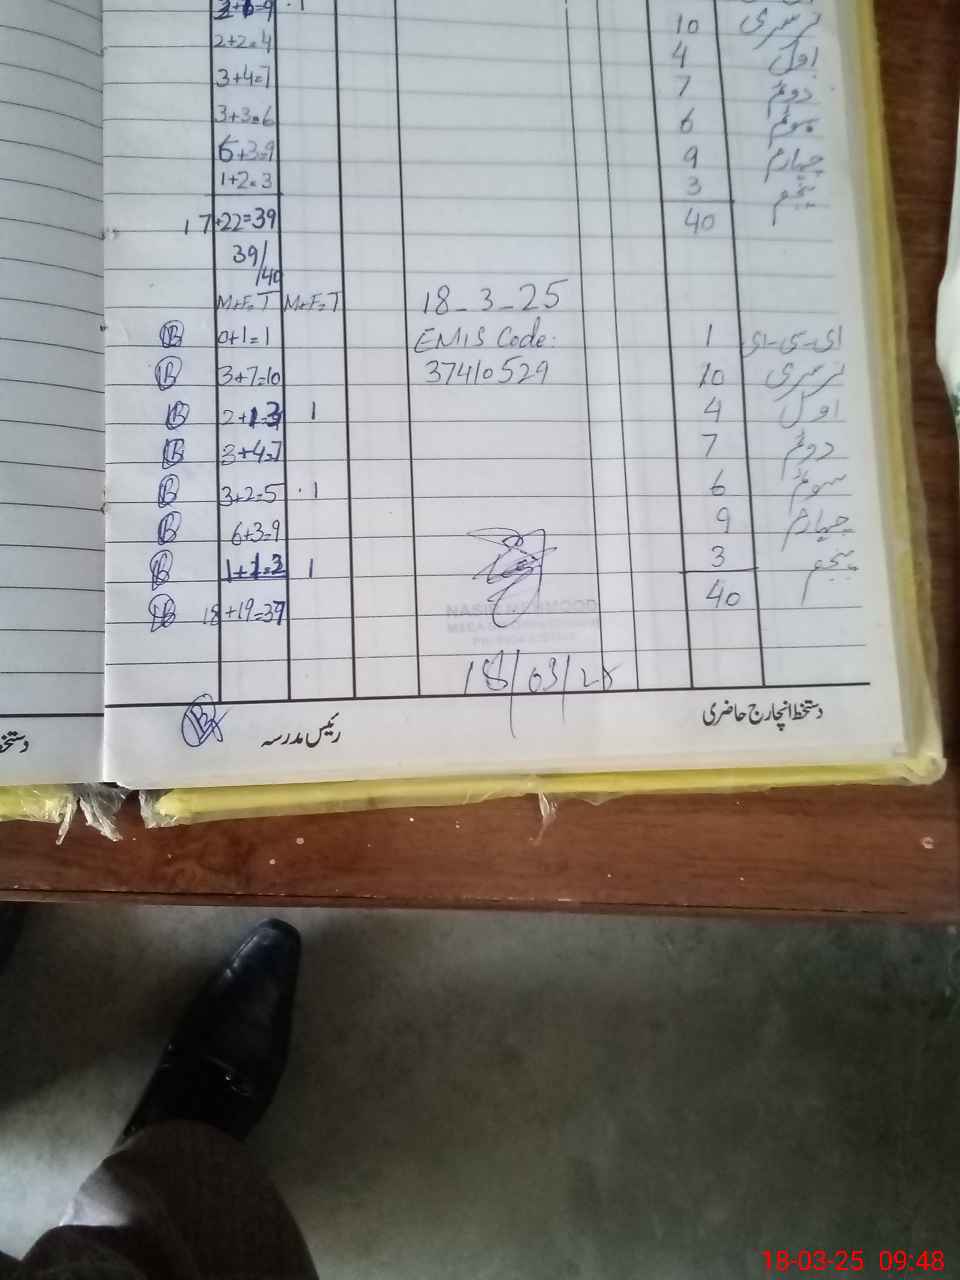 3+6=9 .1
2+2=4 10 نرسری
3+4=7 4 اول
3+3=6 7 دوئم
6+3=9 6 سوئم
1+2=3 9 چہارم
3 پنجم
17+22=39 40
39/40
M+F=T M+F=T 18-3-25
0+1=1 EMIS Code: 1 ای-سی-ای
3+7=10 37410529 10 نرسری
2+1=3 1 4 اول
3+4=7 7 دوئم
3+2=5 .1 6 سوئم
6+3=9 9 چہارم
1+1=2 1 3 پنجم
18+19=37 40
NASIR MEHMOOD
18/03/25
رئیس مدرسہ دستخط انچارج حاضری
18-03-25 09:48